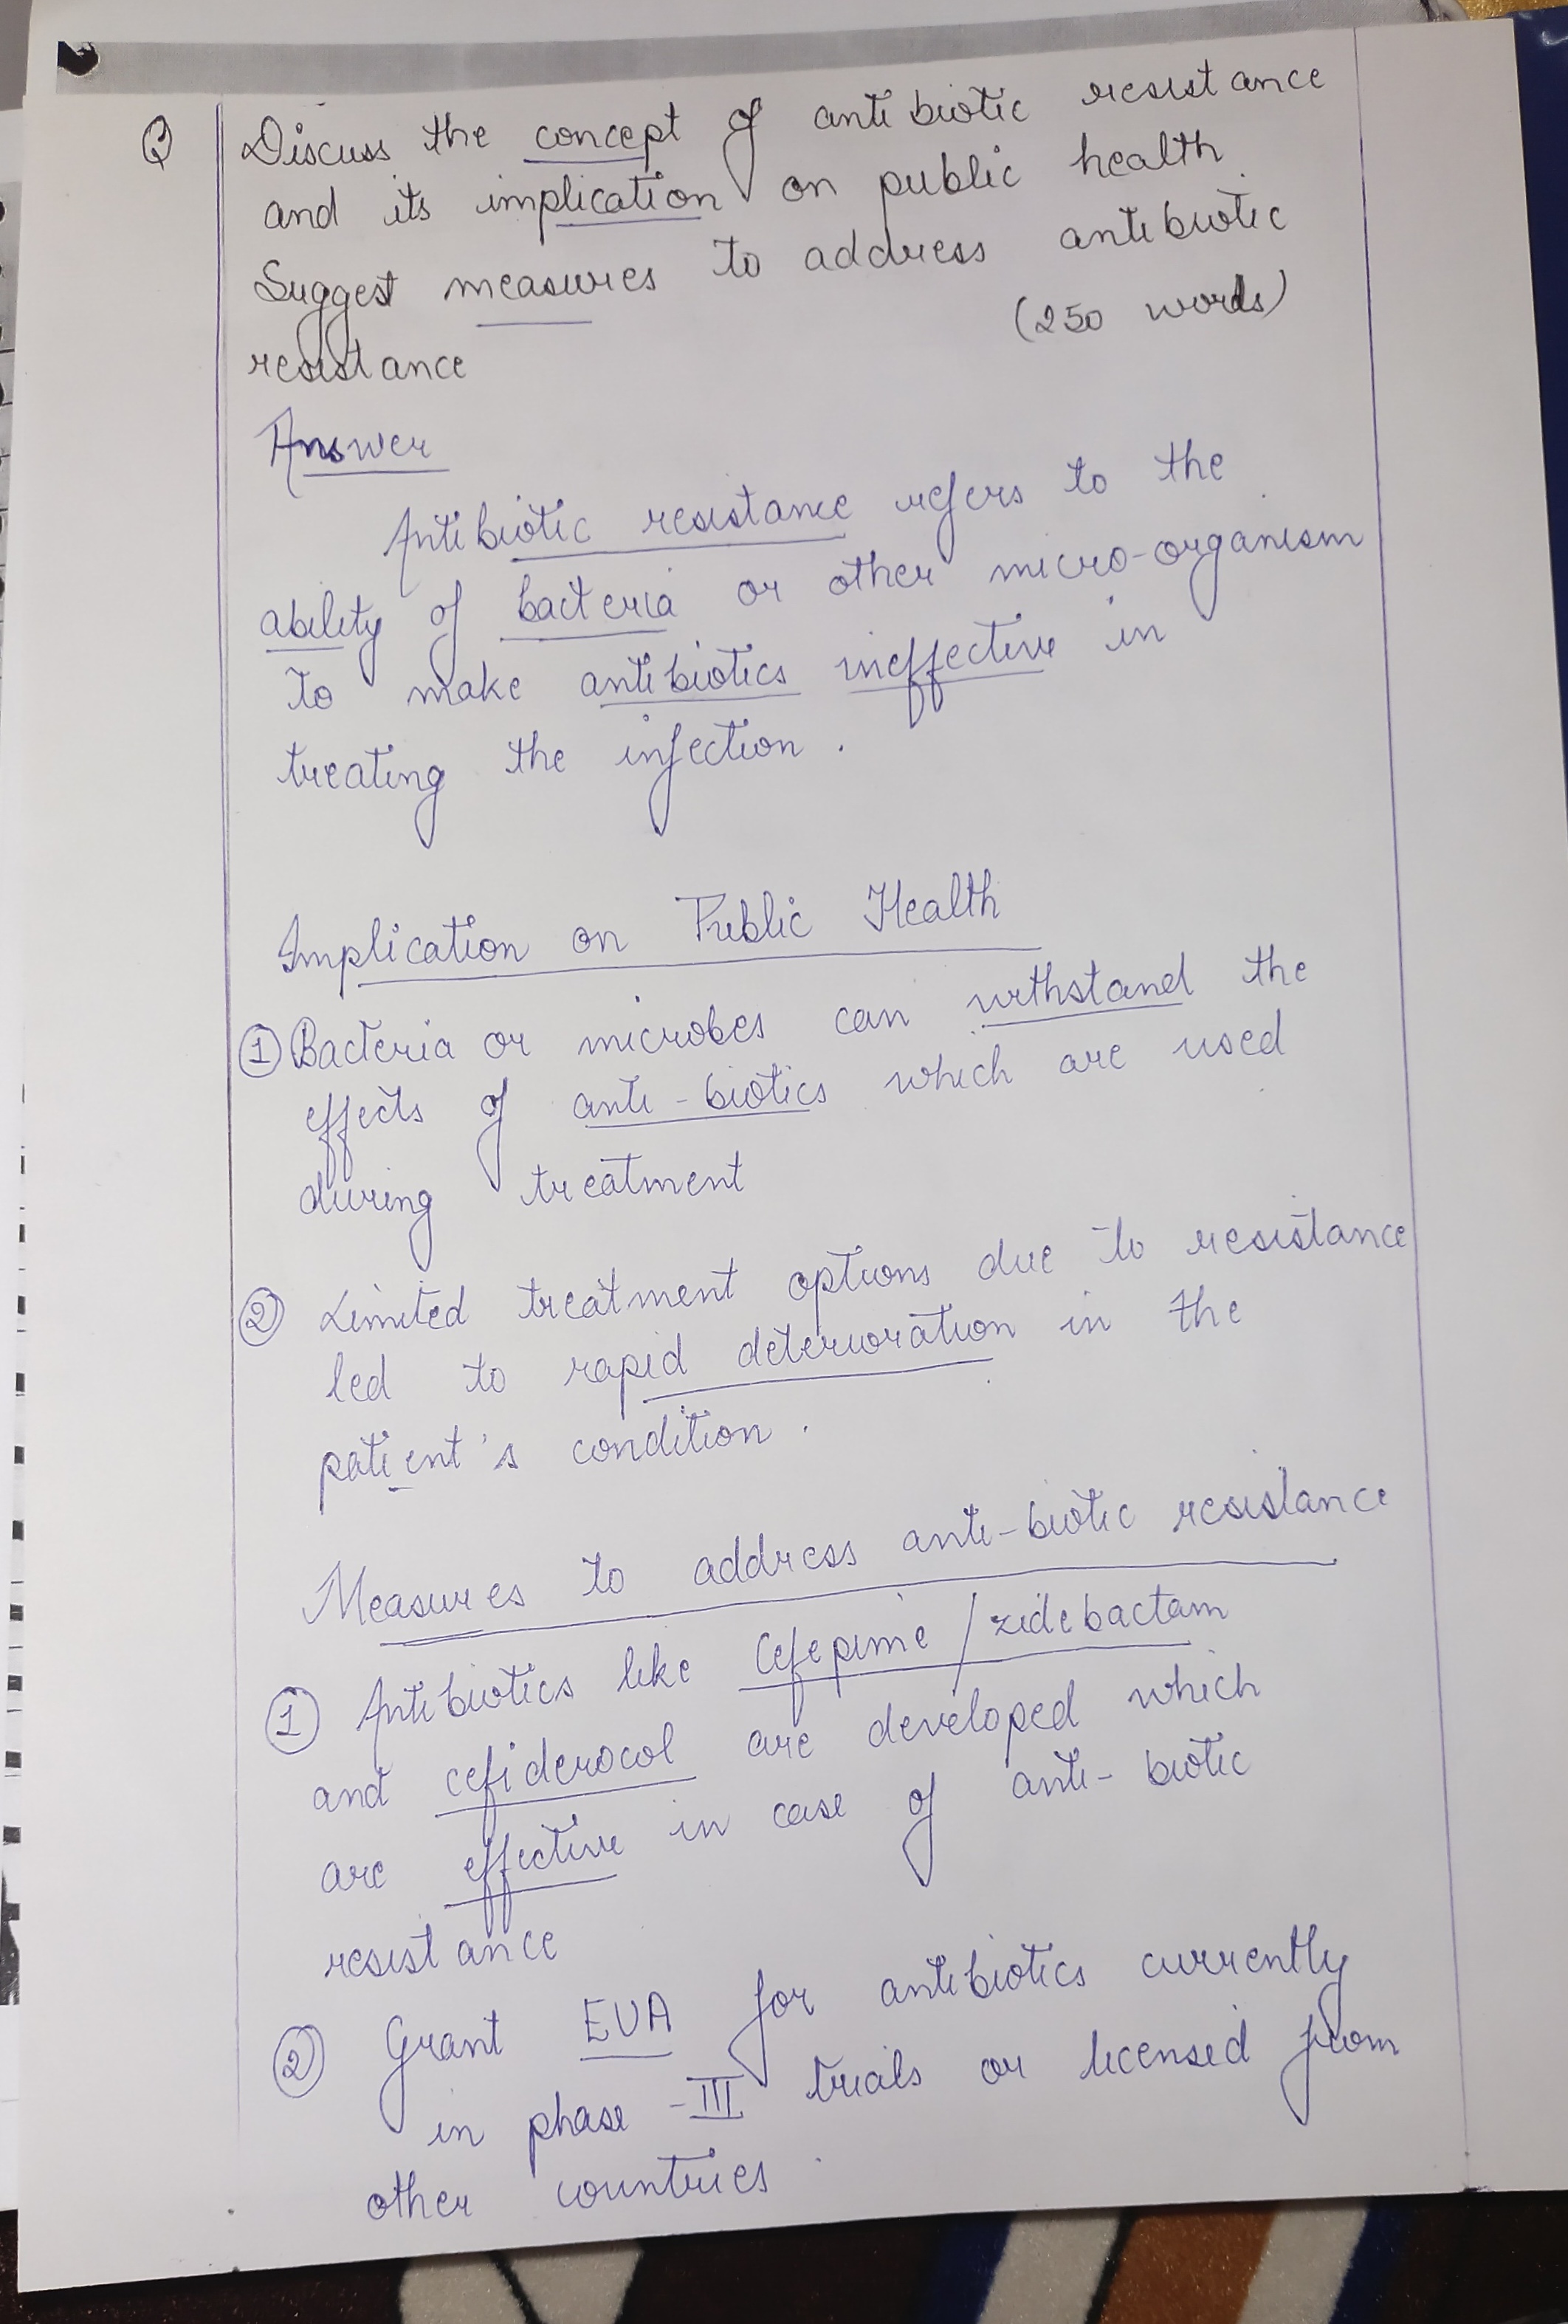 Q Discuss the concept of antibiotic resistance
and its implication on public health.
Suggest measures to address antibiotic
resistance (250 words)
Answer
Antibiotic resistance refers to the
ability of bacteria or other micro-organism
to make antibiotics ineffective in
treating the infection.
Implication on Public Health
① Bacteria or microbes can withstand the
effects of anti-biotics which are used
during treatment
② Limited treatment options due to resistance
led to rapid deterioration in the
patient's condition.
Measures to address anti-biotic resistance
① Antibiotics like Cefepime/zidebactam
and cefiderocol are developed which
are effective in case of anti-biotic
resistance
② Grant EUA for antibiotics currently
in phase-III trials or licensed from
other countries.